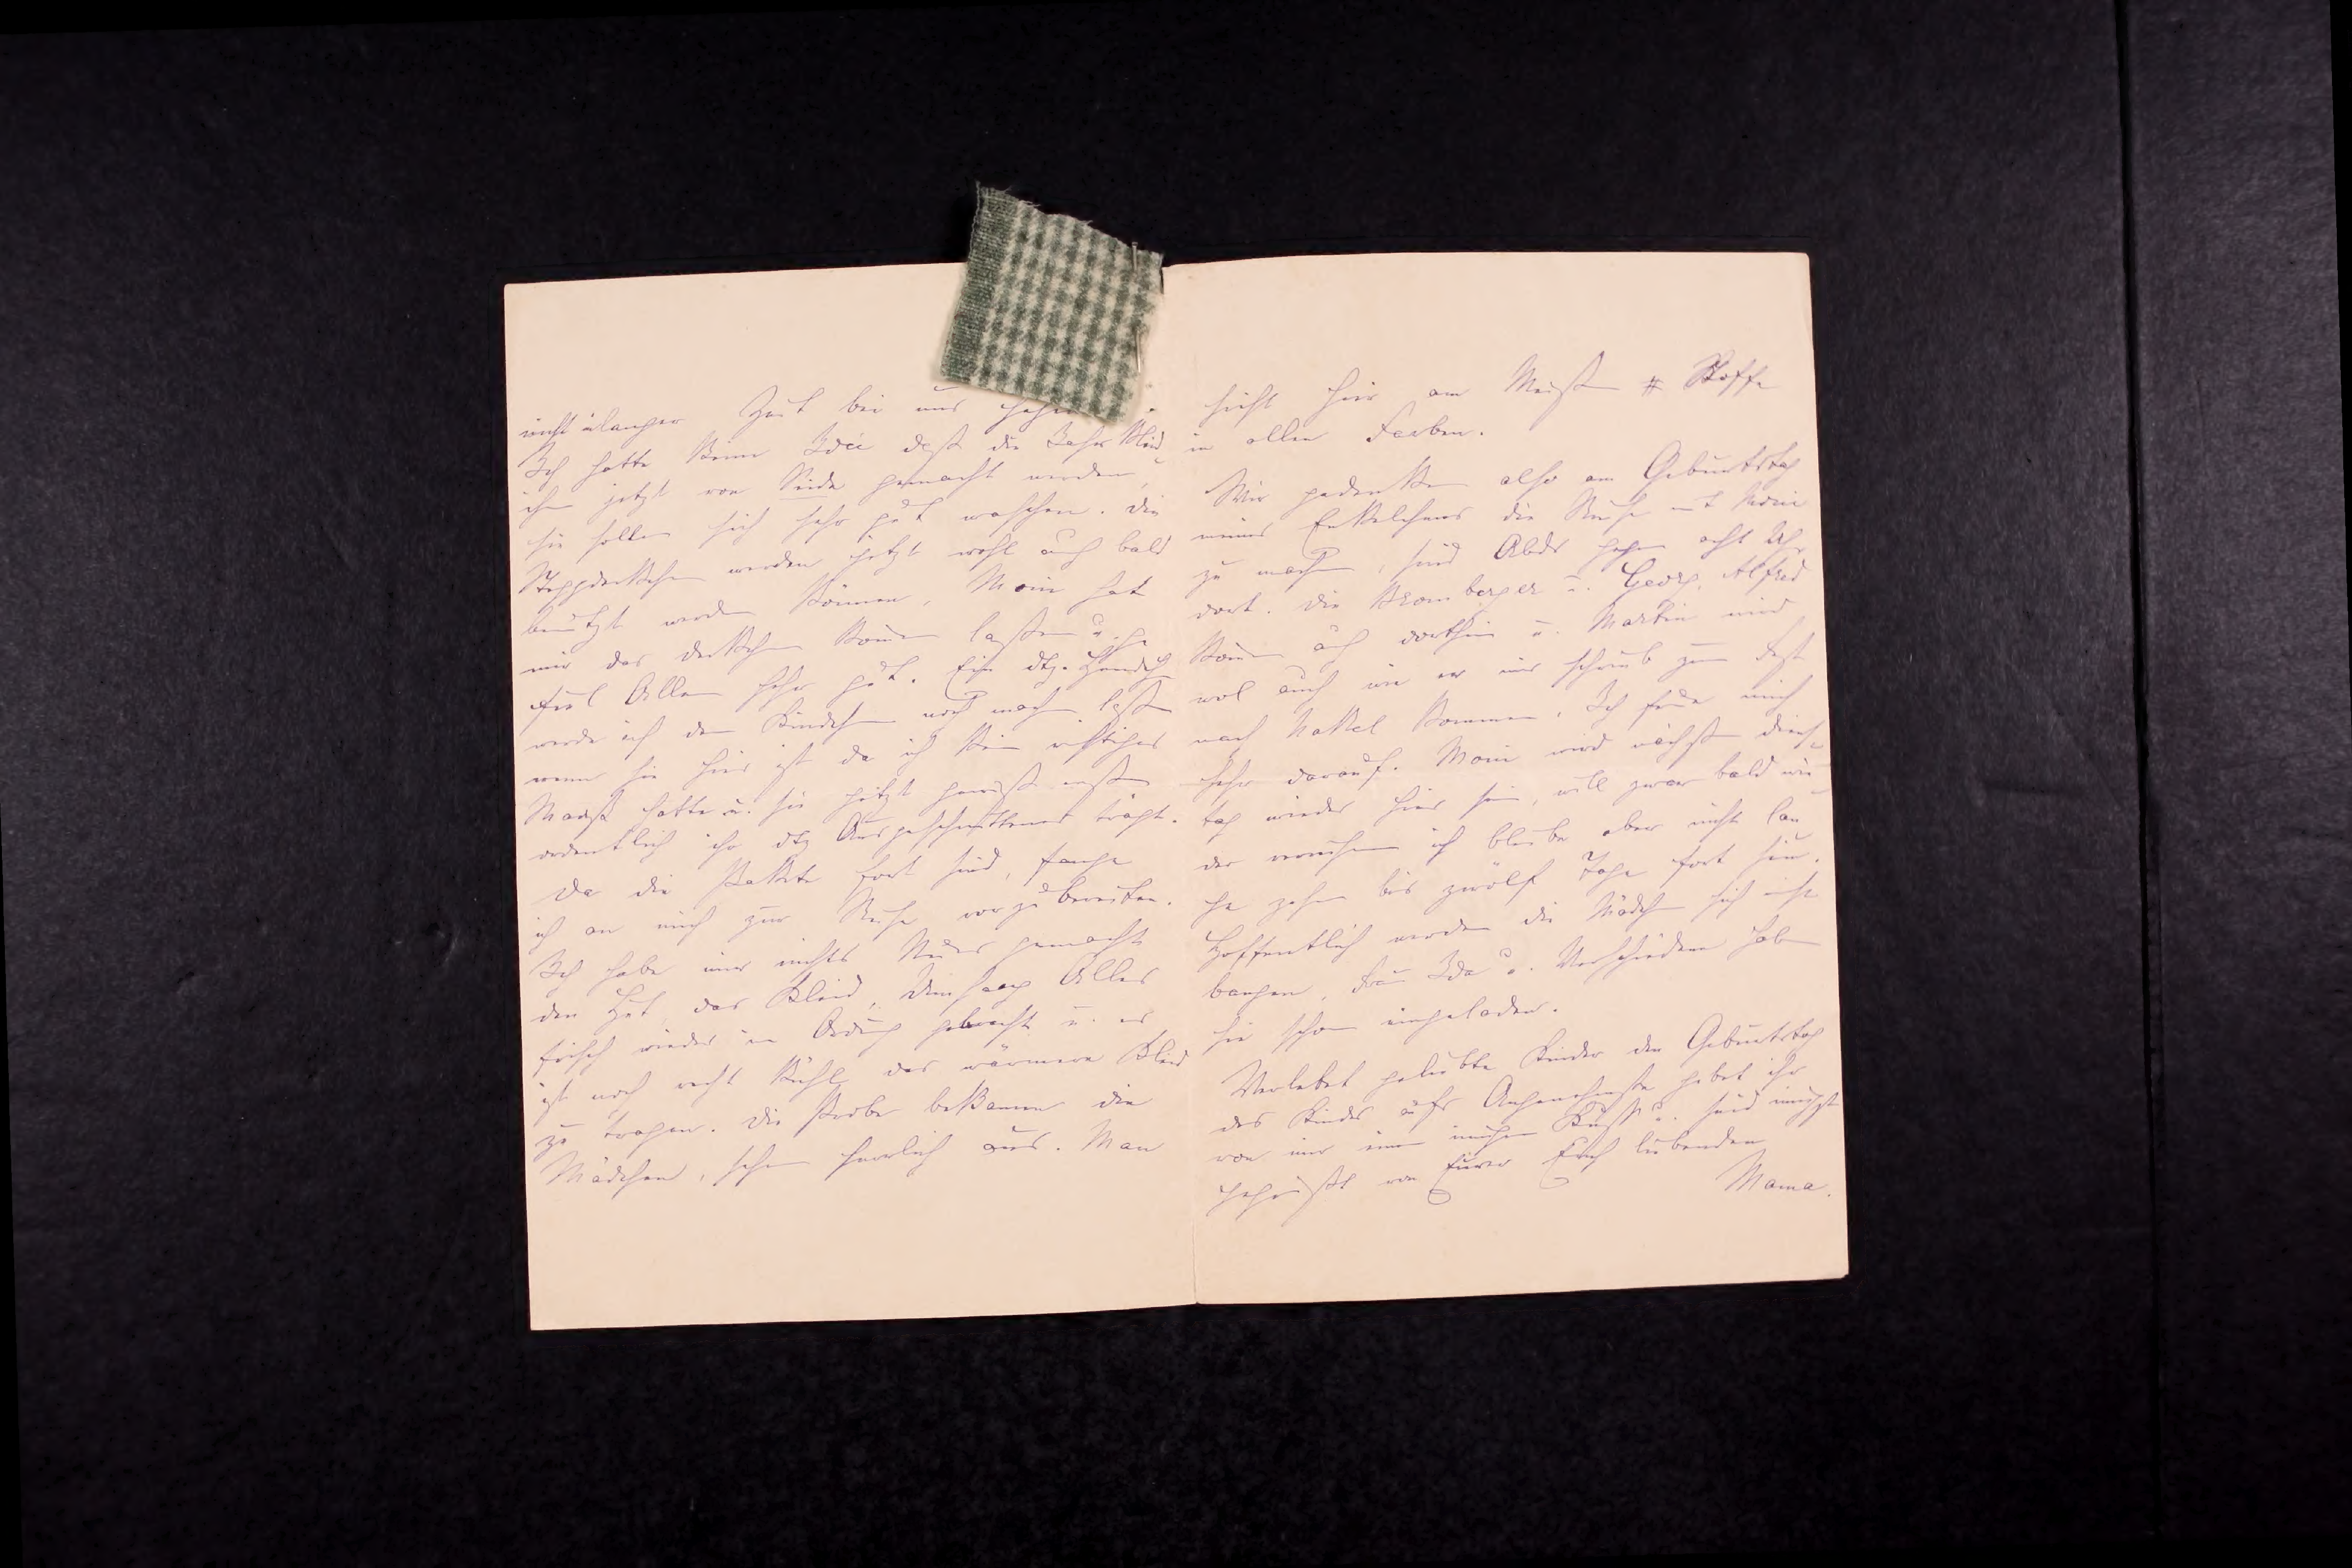 nicht länger Zeit bei uns
Ich hatte keine Idée daß die Jahr Kleid
chen jetzt von Seide gemacht werden,
sie sollen sich sehr gut waschen. Die
Steppdeckchen werden jetzt wohl auch bald
benützt werden können, Moni hat
mir das Deckchen kommen lassen u. ge
fiel Allen sehr gut. Ein dtz.
werde ich dem Kindchen noch machen lassen
wenn sie hier ist da ich kein richtiges
Maaß hatte u. sie jetzt gewiß erst
ordentlich ihr dtz Ausgeschnittenes trägt.
Da die Pakete fort sind, fange
ich an mich zur Reise vorzubereiten.
Ich habe mir nichts Neues gemacht
den Hut, das Kleid, Alles
frisch wieder in Ordng gebracht u. es
ist noch recht kühl, das wärmere Kleid
zu tragen. Die Probe bekamen die
Mädchen, sehen herrlich aus. Man
sieht hier am Meisten # Stoffe
in allen Farben.
Wir gedenken also am Geburtstag
meines Enkelchens die Reise mit Moni
zu machen, sind Abds gegen acht Uhr
dort. Die Bromberger u. Georg, Alfred
kommen auch dorthin u. Martin wird
wol auch wie er mir schrieb zum Fest
nach Nakel kommen. Ich freue mich
sehr darauf. Moni wird nächsten Diens
tag wieder hier sein, will zwar bald wie
der verreisen ich bleibe aber nicht lan
ge zehn bis zwölf Tage fort sein.
Hoffentlich werden die Mädchen sich nicht
bangen, Frau Ida u. Verschiedene haben
sie schon eingeladen.
Verlebet geliebte Kinder den Geburtstag
des Kindes aufs Angenehmste gebet ihr
von mir einen innigen Kuß u. seid innigst
gegrüßt von Eurer Euch liebenden
Mama.